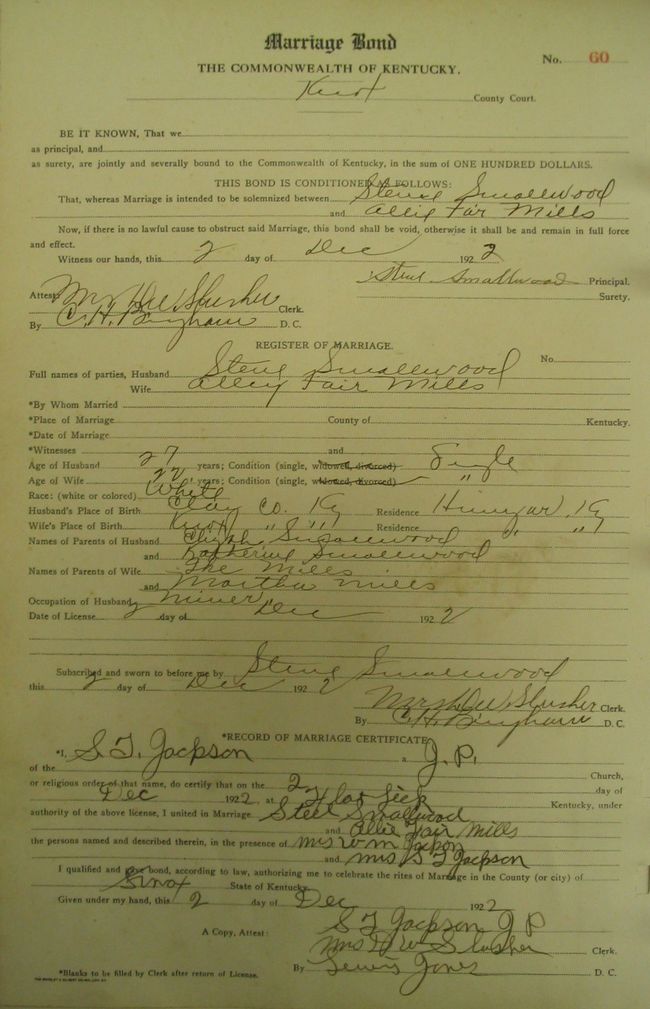 Marriage Bond
No. 60
THE COMMONWEALTH OF KENTUCKY.
Knox County Court.
BE IT KNOWN, That we
as principal, and
as surety, are jointly and severally bound to the Commonwealth of Kentucky, in the sum of ONE HUNDRED DOLLARS.
THIS BOND IS CONDITIONED AS FOLLOWS:
That, whereas Marriage is intended to be solemnized between Steve Smallwood
and Allie Fair Mills
Now, if there is no lawful cause to obstruct said Marriage, this bond shall be void, otherwise it shall be and remain in full force
and effect.
Witness our hands, this 2 day of Dec 1922
Steve Smallwood Principal.
Surety.
Attest: Mrs D W Slusher Clerk.
By C. H. Bingham D. C.
REGISTER OF MARRIAGE.
No.
Full names of parties, Husband Steve Smallwood
Wife Alley Fair Mills
*By Whom Married
*Place of Marriage County of Kentucky.
*Date of Marriage
*Witnesses and
Age of Husband 27 years; Condition (single, widowed, divorced) Single
Age of Wife 22 years; Condition (single, widowed, divorced) "
Race: (white or colored) White
Husband's Place of Birth Clay Co. Ky Residence Hinyar, Ky
Wife's Place of Birth Knox " " " Residence " "
Names of Parents of Husband Smallwood
and Katherine Smallwood
Names of Parents of Wife Mills
and Martha Mills
Occupation of Husband Miner
Date of License 2 day of Dec 1922
Subscribed and sworn to before me by Steve Smallwood
this 2 day of Dec 1922
Mrs D W Slusher Clerk.
By C. H. Bingham D. C.
*RECORD OF MARRIAGE CERTIFICATE
*I, S. T. Jackson a J. P.
of the Church,
or religious order of that name, do certify that on the 2 day of
Dec 1922 at Flat Lick Kentucky, under
authority of the above license, I united in Marriage Steve Smallwood
and Allie Fair Mills
the persons named and described therein, in the presence of Mrs Wm
and Mrs S T Jackson
I qualified and gave bond, according to law, authorizing me to celebrate the rites of Marriage in the County (or city) of
Knox State of Kentucky.
Given under my hand, this 2 day of Dec 1922
S T Jackson J P
A Copy, Attest: Mrs D W Slusher Clerk.
By Lewis Jones D. C.
*Blanks to be filled by Clerk after return of License.